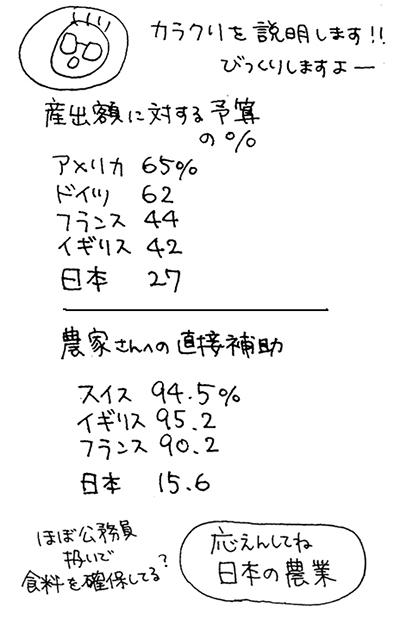 カラクリを説明します!!
びっくりしますよー
産出額に対する予算
の%
アメリカ 65%
ドイツ 62
フランス 44
イギリス 42
日本 27
農家さんへの直接補助
スイス 94.5%
イギリス 95.2
フランス 90.2
日本 15.6
ほぼ公務員
扱いで
食料を確保してる?
応えんしてね
日本の農業